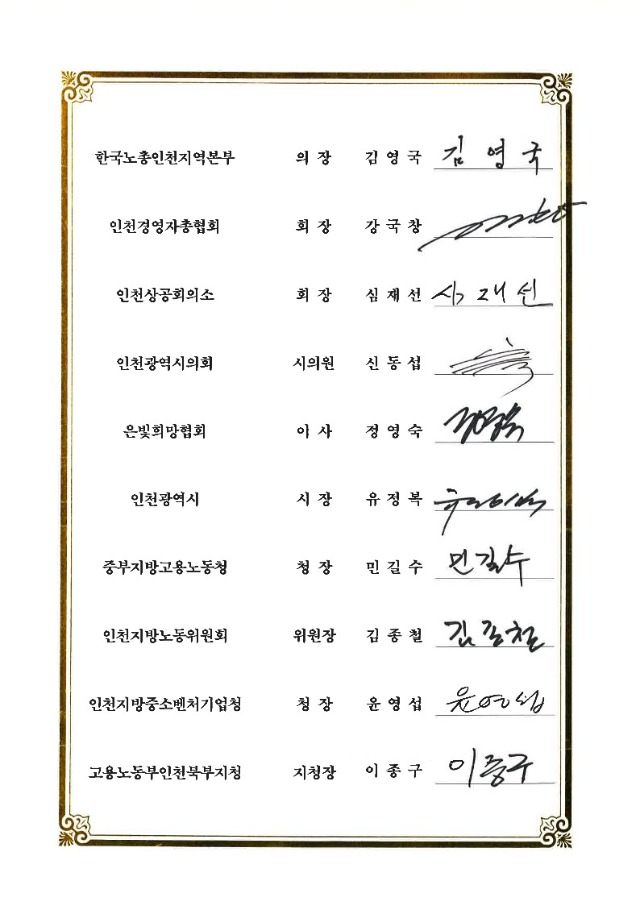 한국노총인천지역본부 의 장 김 영 국 김 영 국
인천경영자총협회 회 장 강 국 창
인천상공회의소 회 장 심 재 선 심 재 선
인천광역시의회 시의원 신 동 섭
은빛희망협회 이 사 정 영 숙
인천광역시 시 장 유 정 복
중부지방고용노동청 청 장 민 길 수 민길수
인천지방노동위원회 위원장 김 종 철 김종철
인천지방중소벤처기업청 청 장 윤 영 섭 윤영섭
고용노동부인천북부지청 지청장 이 종 구 이종구